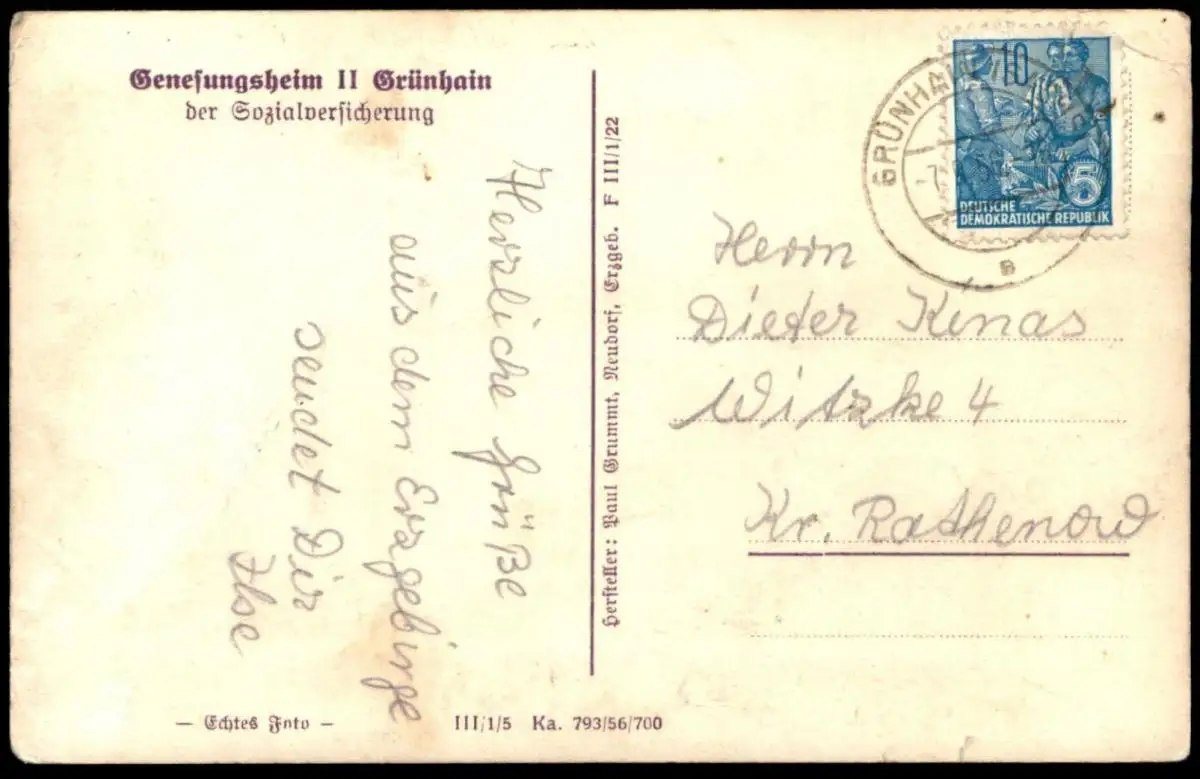 Genesungsheim II Grünhain
der Sozialversicherung
Herzliche Grüße
aus dem Erzgebirge
sendet Dir
Ilse
Hersteller: Paul Grummt, Neudorf, Erzgeb. F III/1/22
GRÜNHAIN
B
10
5
DEUTSCHE
DEMOKRATISCHE REPUBLIK
Herrn
Dieter Kinas
Witzke 4
Kr. Rathenow
— Echtes Foto —
III/1/5 Ka. 793/56/700